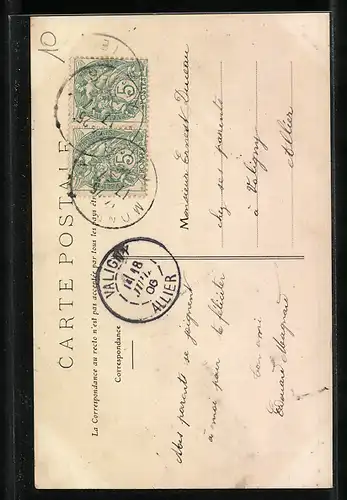 10
CARTE POSTALE
La Correspondance au recto n'est pas acceptée par tous les pays étr
Correspondance
5
POSTES
5
POSTES
VALIGNY
18
06
ALLIER
Monsieur Ernest
chez ses parents
à Valigny
Allier
Mes parents se joignent
à moi pour te féliciter
Ton ami
Edouard